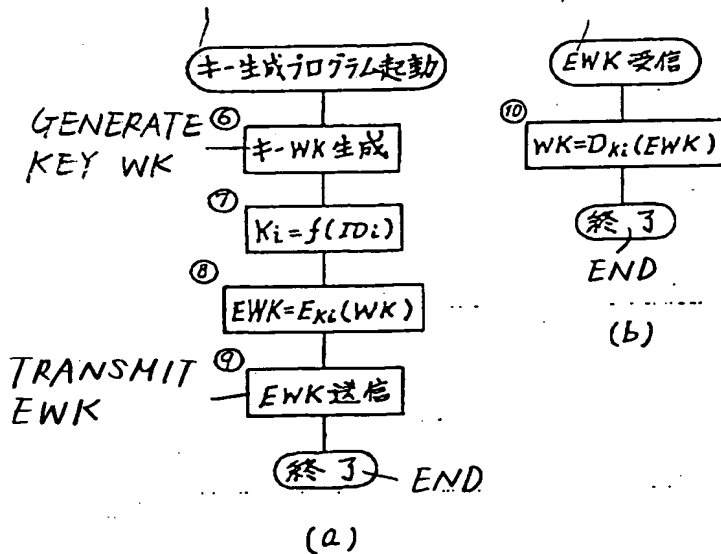 キー生成プログラム起動
GENERATE
KEY WK
⑥
キーWK生成
⑦
Ki=f(IDi)
⑧
EWK=EKi(WK)
TRANSMIT
EWK
⑨
EWK送信
終了
END
(a)
EWK受信
⑩
WK=DKi(EWK)
終了
END
(b)